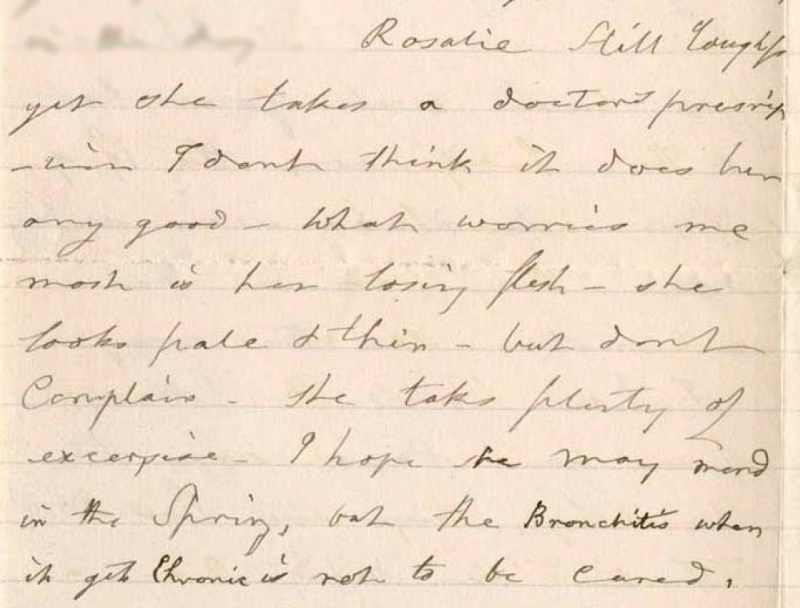 Rosalie Still Coughs
yet she takes a doctors prescrip
-tion I dont think it does her
any good - What worries me
most is her losing flesh - she
looks pale & thin - but dont
Complain - She takes plenty of
excerpise - I hope she may mend
in the Spring, but the Bronchitis when
it gets Chronic is not to be cured.